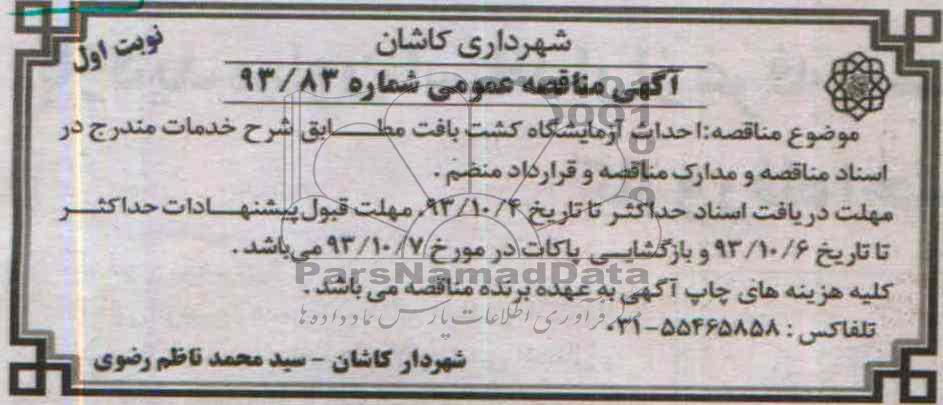 نوبت اول
شهرداری کاشان
آگهی مناقصه عمومی شماره ۹۳/۸۳
موضوع مناقصه:احداث آزمایشگاه کشت بافت مطابق شرح خدمات مندرج در
اسناد مناقصه و مدارک مناقصه و قرارداد منضم .
مهلت دریافت اسناد حداکثر تا تاریخ ۹۳/۱۰/۴، مهلت قبول پیشنهادات حداکثر
تا تاریخ ۹۳/۱۰/۶ و بازگشایی پاکات در مورخ ۹۳/۱۰/۷ می‌باشد .
ParsNamadData
کلیه هزینه های چاپ آگهی به عهده برنده مناقصه می باشد .
فرآوری اطلاعات پارس نماد داده ها
تلفاکس : ۵۵۴۶۵۸۵۸-۰۳۱
شهردار کاشان - سید محمد ناظم رضوی